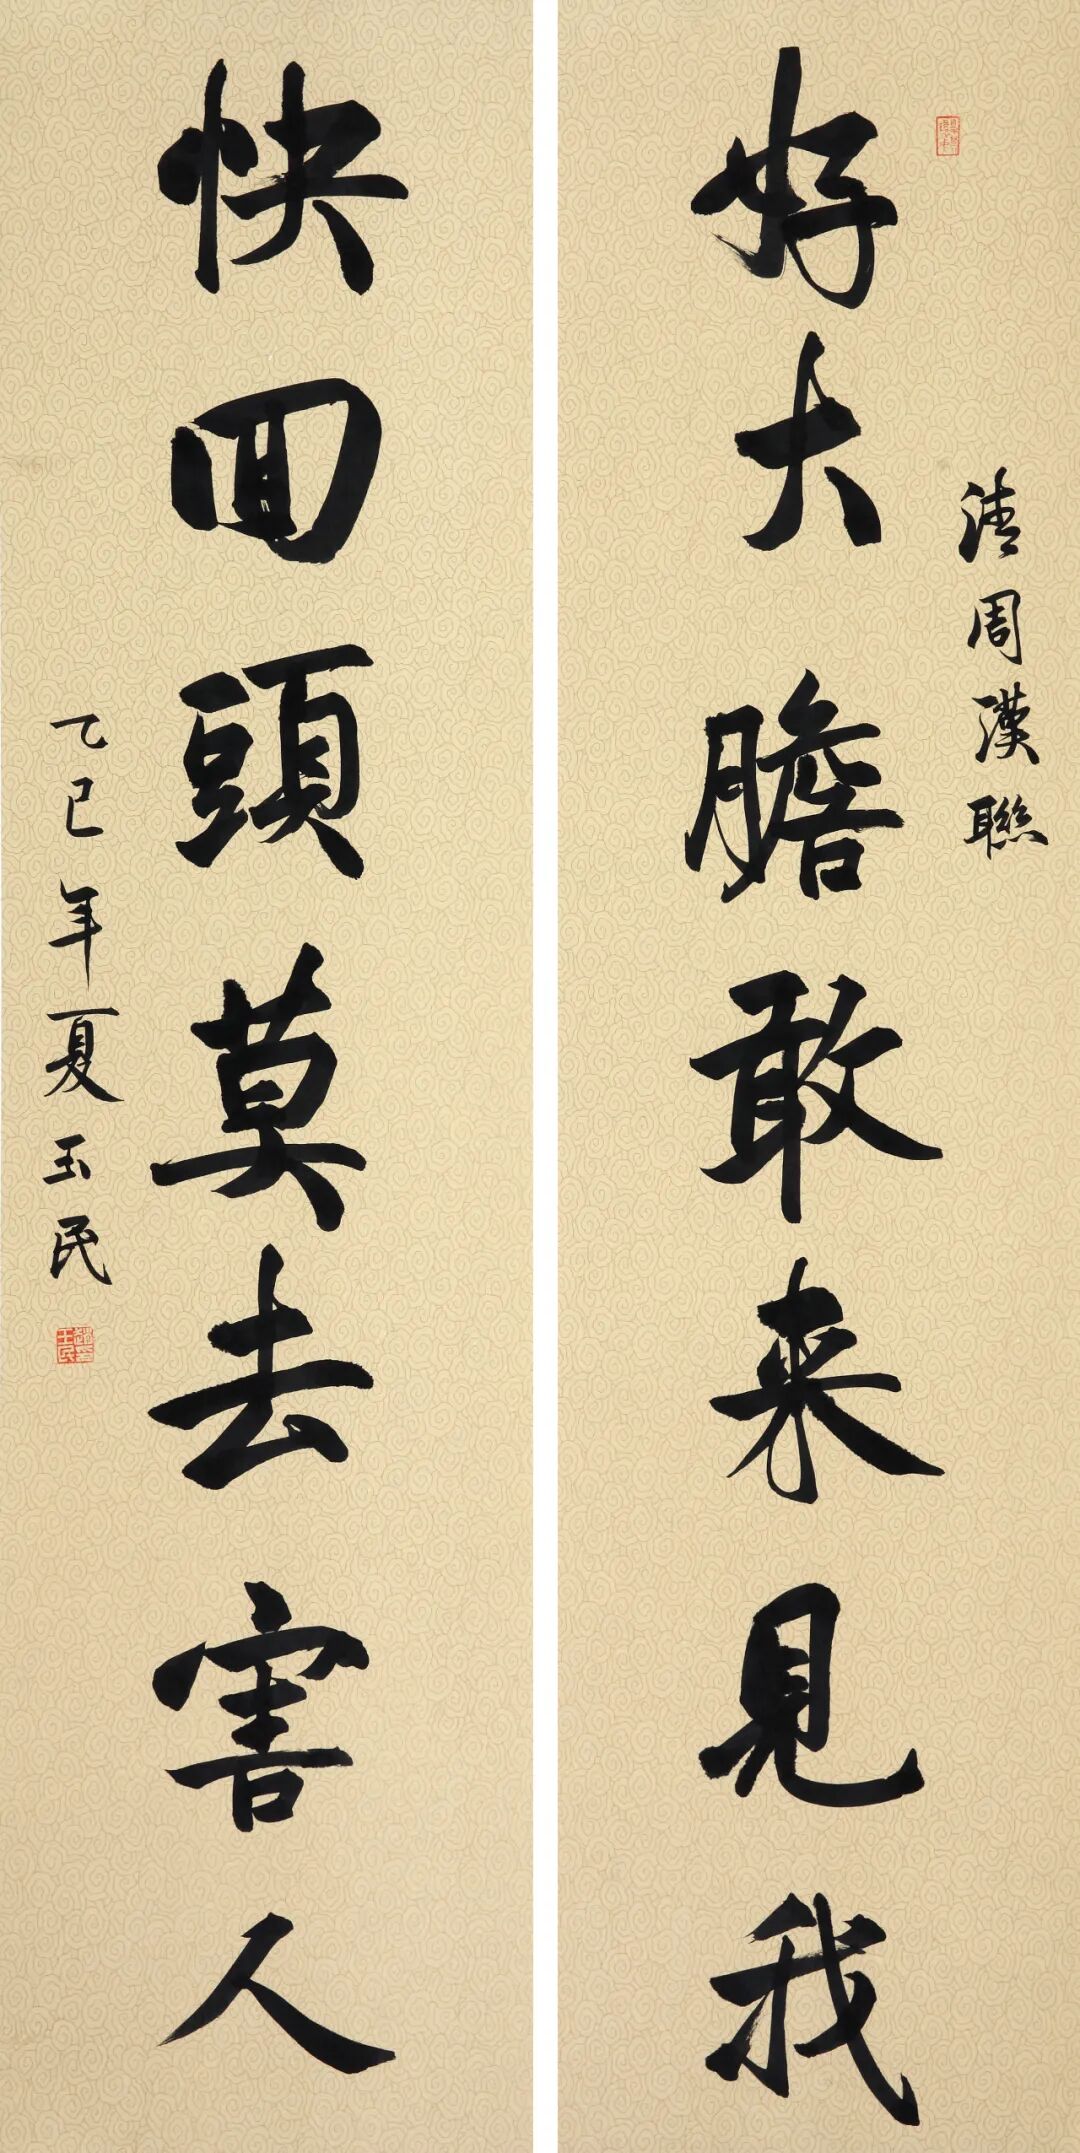 好大膽敢来見我
清周漢聯
快回頭莫去害人
乙巳年夏玉民